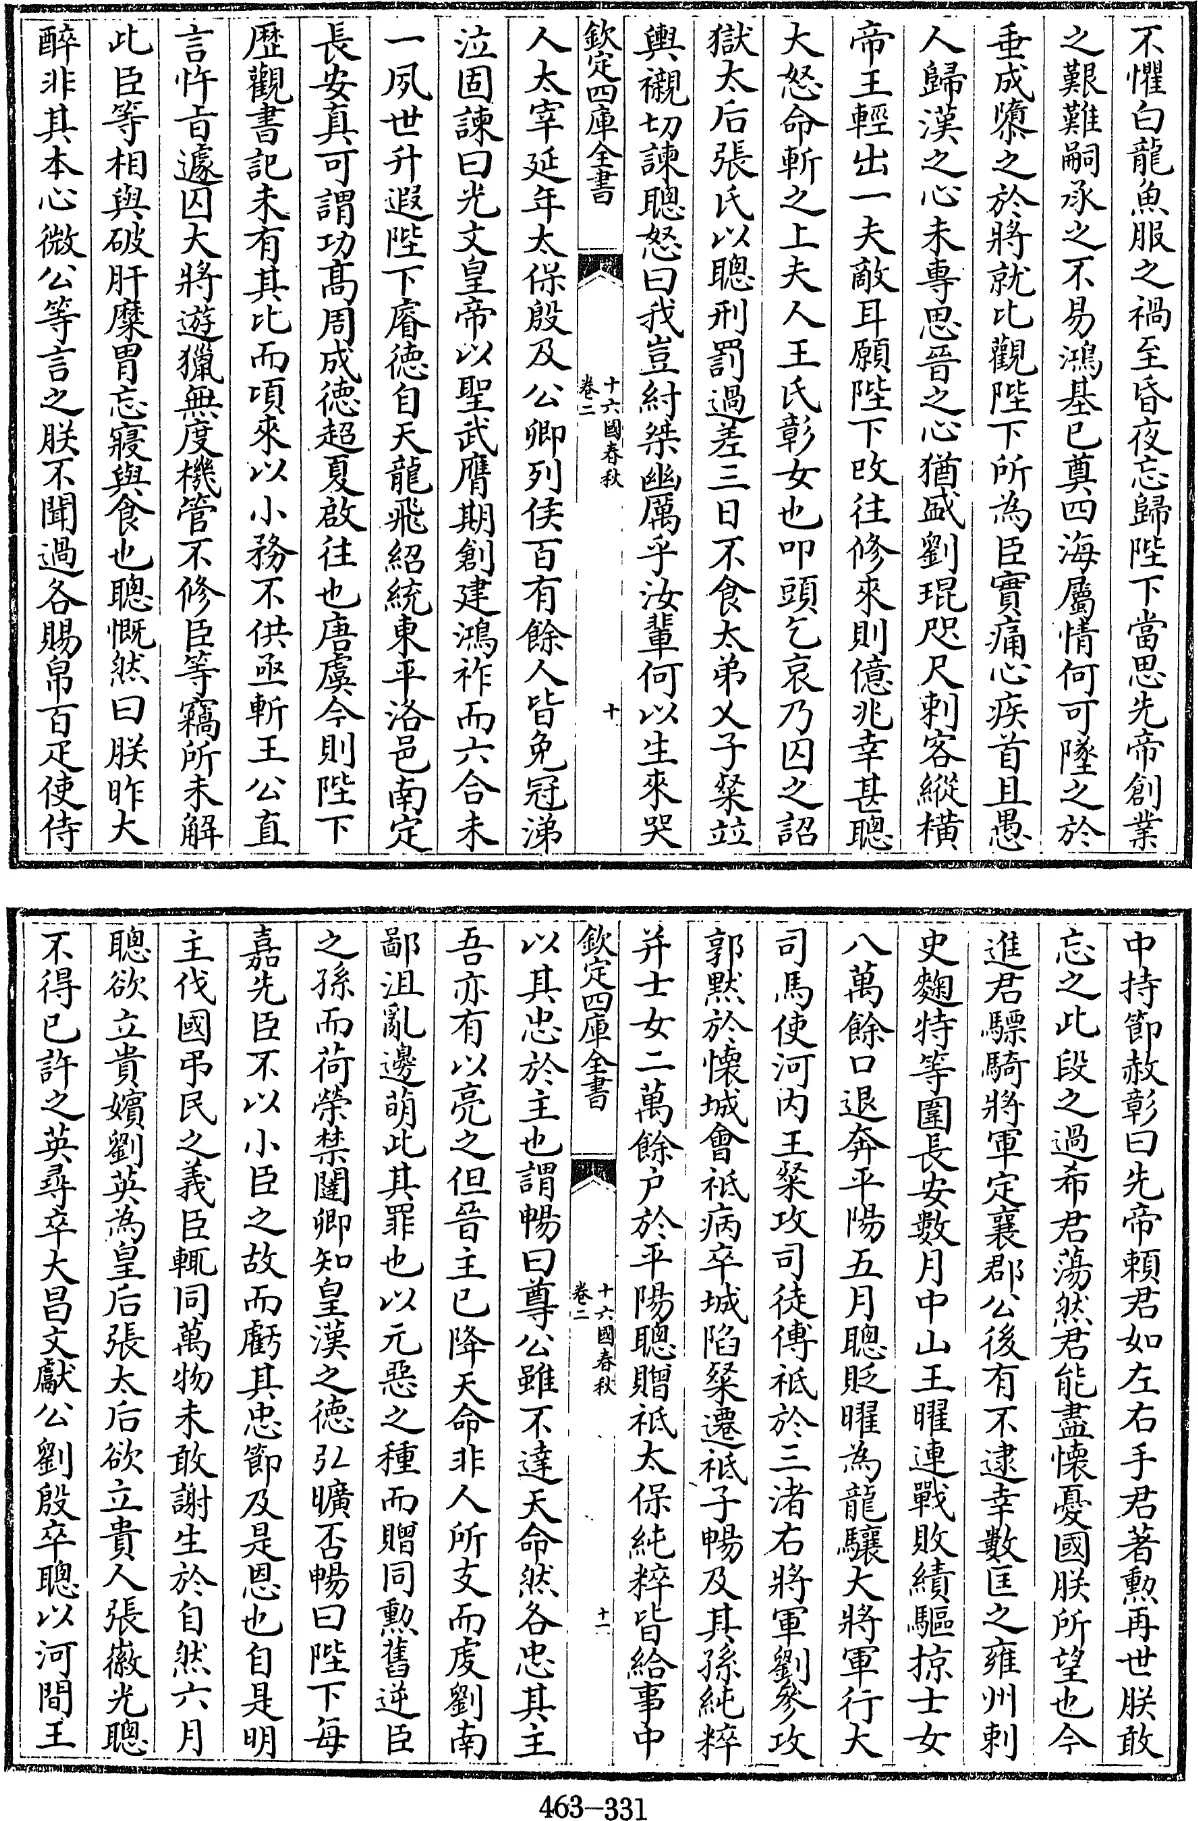 不懼白龍魚服之禍至昏夜忘歸陛下當思先帝創業
之艱難嗣承之不易鴻基已奠四海屬情何可墜之於
垂成隳之於將就比觀陛下所為臣實痛心疾首且愚
人歸漢之心未專思晉之心猶盛劉琨咫尺刺客縱橫
帝王輕出一夫敵耳願陛下改往修來則億兆幸甚聰
大怒命斬之上夫人王氏彰女也叩頭乞哀乃囚之詔
獄太后張氏以聰刑罰過差三日不食太弟乂子粲竝
輿櫬切諫聰怒曰我豈紂桀幽厲乎汝輩何以生來哭
欽定四庫全書
十六國春秋
卷二
十
人太宰延年太保殷及公卿列侯百有餘人皆免冠涕
泣固諫曰光文皇帝以聖武膺期創建鴻祚而六合未
一夙世升遐陛下睿德自天龍飛紹統東平洛邑南定
長安真可謂功髙周成德超夏啟往也唐虞今則陛下
歴觀書記未有其比而項來以小務不供亟斬王公直
言忤㫖遽囚大將遊獵無度機管不修臣等竊所未解
此臣等相與破肝糜胃忘寢與食也聰慨然曰朕昨大
醉非其本心微公等言之朕不聞過各賜帛百疋使侍
中持節赦彰曰先帝頼君如左右手君著勲再世朕敢
忘之此段之過希君蕩然君能盡懷憂國朕所望也今
進君驃騎將軍定襄郡公後有不逮幸數匡之雍州刺
史麴特等圍長安數月中山王曜連戰敗績驅掠士女
八萬餘口退奔平陽五月聰貶曜為龍驤大將軍行大
司馬使河内王粲攻司徒傅祗於三渚右將軍劉參攻
郭黙於懷城會祗病卒城陷粲遷祗子暢及其孫純粹
并士女二萬餘户於平陽聰贈祗太保純粹皆給事中
欽定四庫全書
十六國春秋
卷二
十一
以其忠於主也謂暢曰尊公雖不達天命然各忠其主
吾亦有以亮之但晉主已降天命非人所支而虔劉南
鄙沮亂邊萌此其罪也以元惡之種而贈同勲舊逆臣
之孫而荷榮禁闥卿知皇漢之德弘曠否暢曰陛下每
嘉先臣不以小臣之故而虧其忠節及是恩也自是明
主伐國弔民之義臣輒同萬物未敢謝生於自然六月
聰欲立貴嬪劉英為皇后張太后欲立貴人張徽光聰
不得已許之英尋卒大昌文獻公劉殷卒聰以河間王
463-331